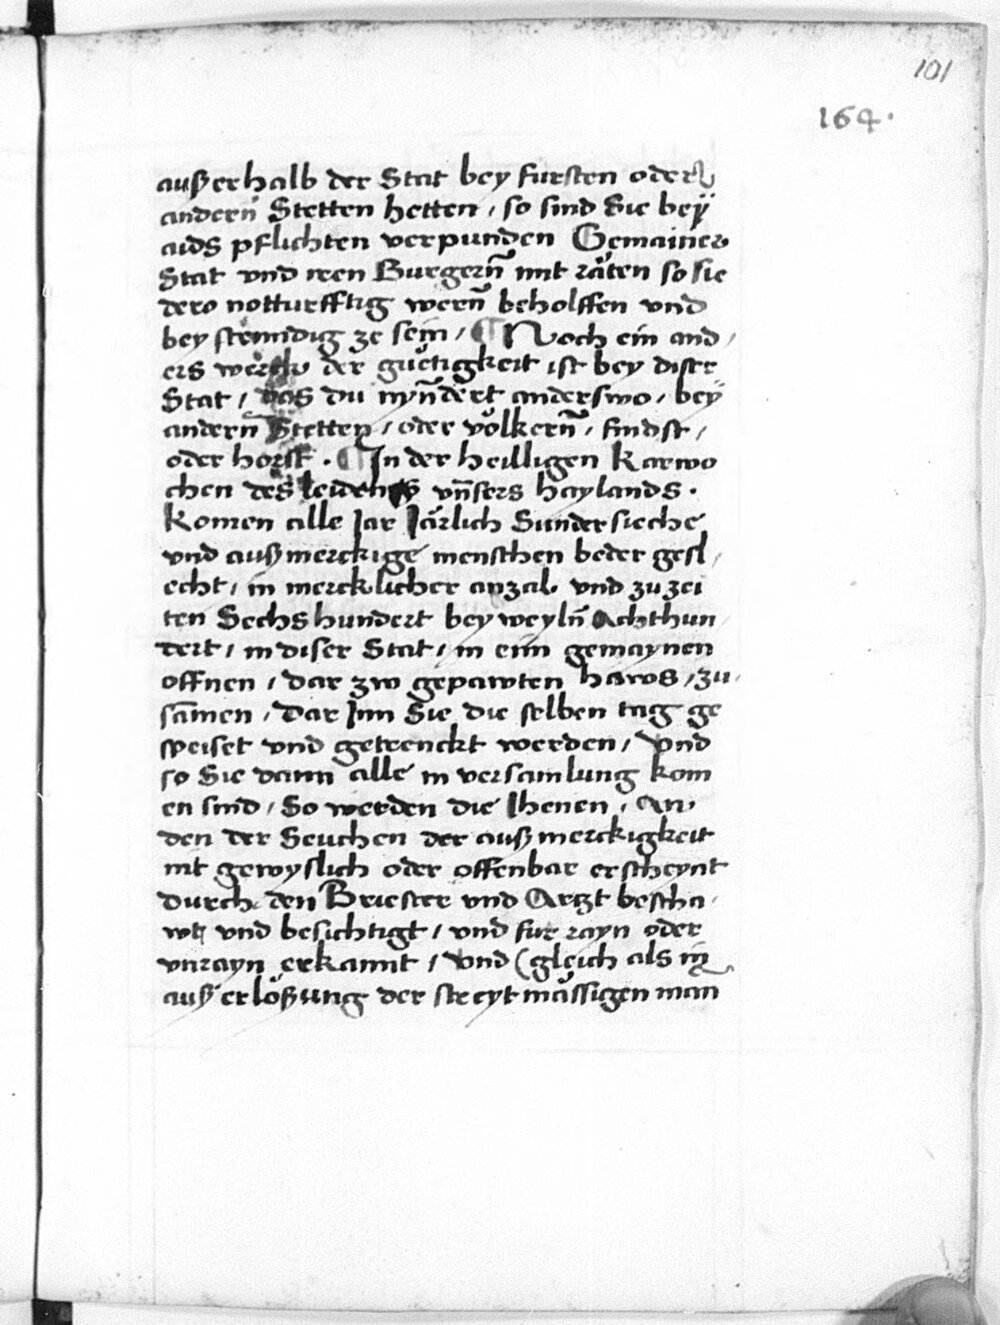 101
164.
ausserhalb der Stat bey fursten oder
andern̄ Stetten hetten / so sind Sie beÿ
aids pflichten verpunden Gemainer
Stat vnd iren Burgern̄ mit räten so sie
dero notturfftig wern̄ beholffen vnd
bey stenndig ze sein / ¶ Noch ein and /
ers werck der guetigkeit ist bey diser
Stat / das du nyn̄dert anderswo / beÿ
andern̄ Stetten / oder völkern̄ / findst /
oder horst . ¶ In der heilligen Karwo
chen des leidens vn̄sers haylands .
Komen alle Jar Järlich Sundersieche
vnd außmerckige menschen beder gesl /
echt / in mercklicher anzal vnd zu zei
ten Sechshundert beyweyln̄ Achthun
dert / in diser Stat / in eim gemaynen
offnen / dar zw gepawten haws / zu /
samen / Dar Inn Sie die selben tag ge
speiset vnd getrenckt werden / Vnd
so Sie dann alle in versamlung kom
en sind / So werden die Ihenen / An
den der Seuchen der außmerckigkeit
nit gewyslich oder offenbar erscheynt
durch den Briester vnd Artzt bescha /
wt vnd besichtigt / vnd fur rayn oder
vnrayn erkannt / Vnd (gleich als in
außerlößung der streytmässigen man